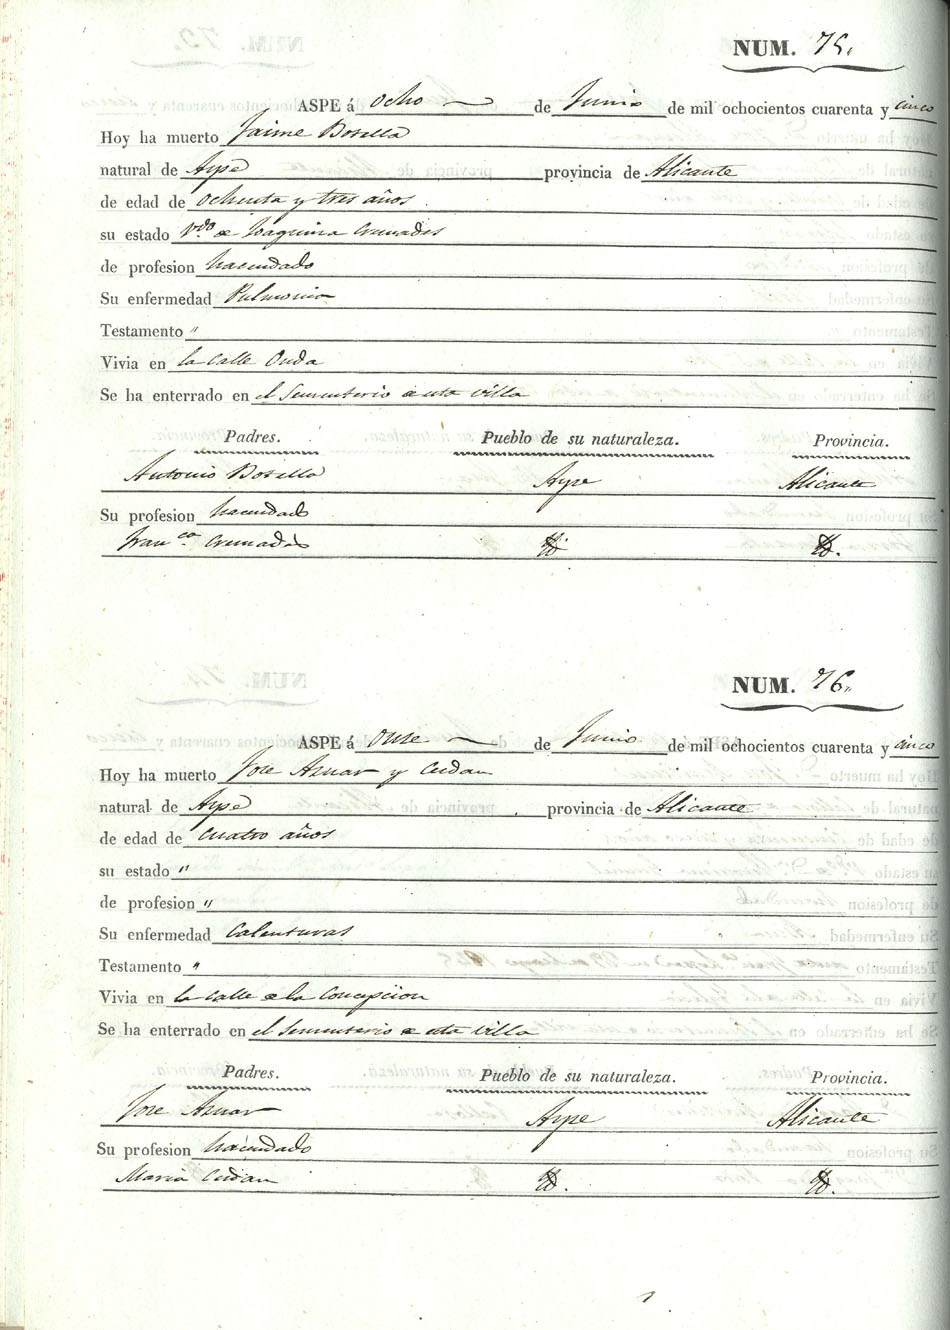 NUM. 75.
ASPE á ocho de Junio de mil ochocientos cuarenta y cinco
Hoy ha muerto Jaime Botella
natural de Aspe provincia de Alicante
de edad de ochenta y tres años
su estado Vdo de Joaquina Cremades
de profesion hacendado
Su enfermedad Pulmonia
Testamento "
Vivia en la calle Onda
Se ha enterrado en el Sementerio de esta villa
Padres. Pueblo de su naturaleza. Provincia.
Antonio Botella Aspe Alicante
Su profesion hacendado
Franca. Cremades Yd. Yd.
NUM. 76.
ASPE á onse de Junio de mil ochocientos cuarenta y cinco
Hoy ha muerto Jose Aznar y Cerdan
natural de Aspe provincia de Alicante
de edad de cuatro años
su estado "
de profesion "
Su enfermedad Calenturas
Testamento "
Vivia en la calle de la Concepcion
Se ha enterrado en el Sementerio de esta villa
Padres. Pueblo de su naturaleza. Provincia.
Jose Aznar Aspe Alicante
Su profesion hacendado
Maria Cerdan Yd. Yd.